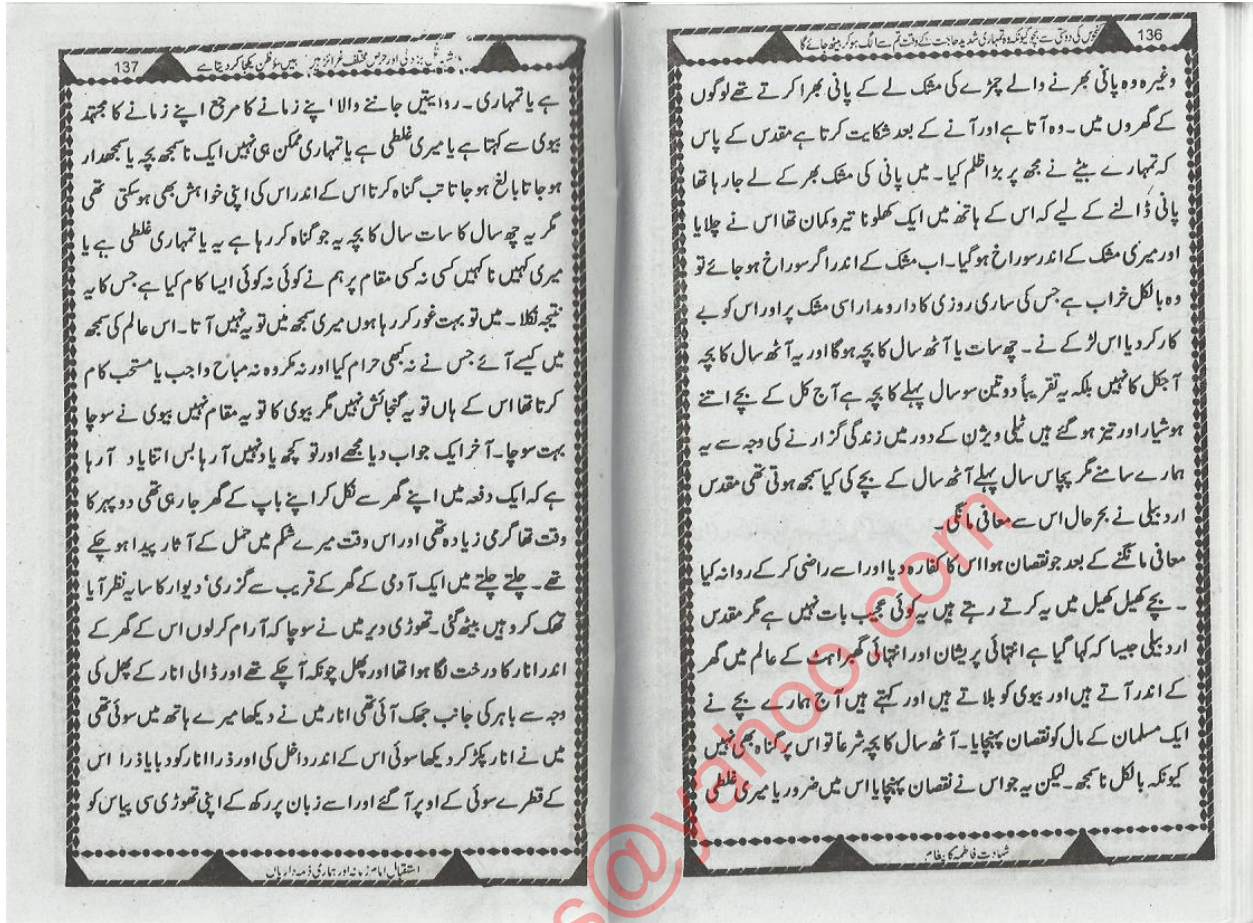 136
کنجوس کی دوستی سے بچو کیونکہ وہ تمہاری شدید حاجت کے وقت تم سے الگ ہو کر بیٹھ جائے گا
وغیرہ وہ پانی بھرنے والے چمڑے کی مشک لے کے پانی بھرا کرتے تھے لوگوں
کے گھروں میں ۔ وہ آتا ہے اور آنے کے بعد شکایت کرتا ہے مقدس کے پاس
کہ تمہارے بیٹے نے مجھ پر بڑا ظلم کیا ۔ میں پانی کی مشک بھر کے لے جا رہا تھا
پانی ڈالنے کے لیے کہ اس کے ہاتھ میں ایک کھلونا تیر و کمان تھا اس نے چلایا
اور میری مشک کے اندر سوراخ ہو گیا ۔ اب مشک کے اندر اگر سوراخ ہو جائے تو
وہ بالکل خراب ہے جس کی ساری روزی کا دارومدار اسی مشک پر اور اس کو بے
کار کر دیا اس لڑکے نے ۔ چھ سات یا آٹھ سال کا بچہ ہوگا اور یہ آٹھ سال کا بچہ
آجکل کا نہیں بلکہ یہ تقریباً دو تین سو سال پہلے کا بچہ ہے آج کل کے بچے اتنے
ہوشیار اور تیز ہو گئے ہیں ٹیلی ویژن کے دور میں زندگی گزارنے کی وجہ سے یہ
ہمارے سامنے مگر پچاس سال پہلے آٹھ سال کے بچے کی کیا سمجھ ہوتی تھی مقدس
اردبیلی نے بحر حال اس سے معافی مانگی ۔
معافی مانگنے کے بعد جو نقصان ہوا اس کا کفارہ دیا اور اسے راضی کر کے روانہ کیا
۔ بچے کھیل کھیل میں یہ کرتے رہتے ہیں یہ کوئی عجیب بات نہیں ہے مگر مقدس
اردبیلی جیسا کہ کہا گیا ہے انتہائی پریشان اور انتہائی گھبراہٹ کے عالم میں گھر
کے اندر آتے ہیں اور بیوی کو بلاتے ہیں اور کہتے ہیں آج ہمارے بچے نے
ایک مسلمان کے مال کو نقصان پہنچایا ۔ آٹھ سال کا بچہ شرعاً تو اس پر گناہ بھی نہیں
کیونکہ بالکل نا سمجھ ۔ لیکن یہ جو اس نے نقصان پہنچایا اس میں ضرور یا میری غلطی
شہادت فاطمہ کا پیغام
137
بزدلی اور حرص مختلف غرائز ہیں جنہیں سوء ظن یکجا کر دیتا ہے
ہے یا تمہاری ۔ روایتیں جاننے والا اپنے زمانے کا مرجع اپنے زمانے کا مجتہد
بیوی سے کہتا ہے یا میری غلطی ہے یا تمہاری ممکن ہی نہیں ایک نا سمجھ بچہ یا سمجھدار
ہو جاتا بالغ ہو جاتا تب گناہ کرتا اس کے اندر اس کی اپنی خواہش بھی ہو سکتی تھی
مگر یہ چھ سال کا سات سال کا بچہ یہ جو گناہ کر رہا ہے یہ یا تمہاری غلطی ہے یا
میری کہیں نا کہیں کسی نہ کسی مقام پر ہم نے کوئی نہ کوئی ایسا کام کیا ہے جس کا یہ
نتیجہ نکلا ۔ میں تو بہت غور کر رہا ہوں میری سمجھ میں تو یہ نہیں آتا ۔ اس عالم کی سمجھ
میں کیسے آئے جس نے نہ کبھی حرام کیا اور نہ مکروہ نہ مباح واجب یا مستحب کام
کرتا تھا اس کے ہاں تو یہ گنجائش نہیں مگر بیوی کا تو یہ مقام نہیں بیوی نے سوچا
بہت سوچا ۔ آخر ایک جواب دیا مجھے اور تو کچھ یاد نہیں آ رہا بس اتنا یاد آ رہا
ہے کہ ایک دفعہ میں اپنے گھر سے نکل کر اپنے باپ کے گھر جا رہی تھی دوپہر کا
وقت تھا گرمی زیادہ تھی اور اس وقت میرے شکم میں حمل کے آثار پیدا ہو چکے
تھے ۔ چلتے چلتے میں ایک آدمی کے گھر کے قریب سے گزری ‘ دیوار کا سایہ نظر آیا
تھک کر وہیں بیٹھ گئی ۔ تھوڑی دیر میں نے سوچا کہ آرام کر لوں اس کے گھر کے
اندر انار کا درخت لگا ہوا تھا اور پھل چونکہ آ چکے تھے اور ڈالی انار کے پھل کی
وجہ سے باہر کی جانب جھک آئی تھی انار میں نے دیکھا میرے ہاتھ میں سوئی تھی
میں نے انار پکڑ کر دیکھا سوئی اس کے اندر داخل کی اور ذرا انار کو دبایا ذرا اس
کے قطرے سوئی کے اوپر آ گئے اور اسے زبان پر رکھ کے اپنی تھوڑی سی پیاس کو
استقبال امام زمانہ اور ہماری ذمہ داریاں
s@yahoo.com